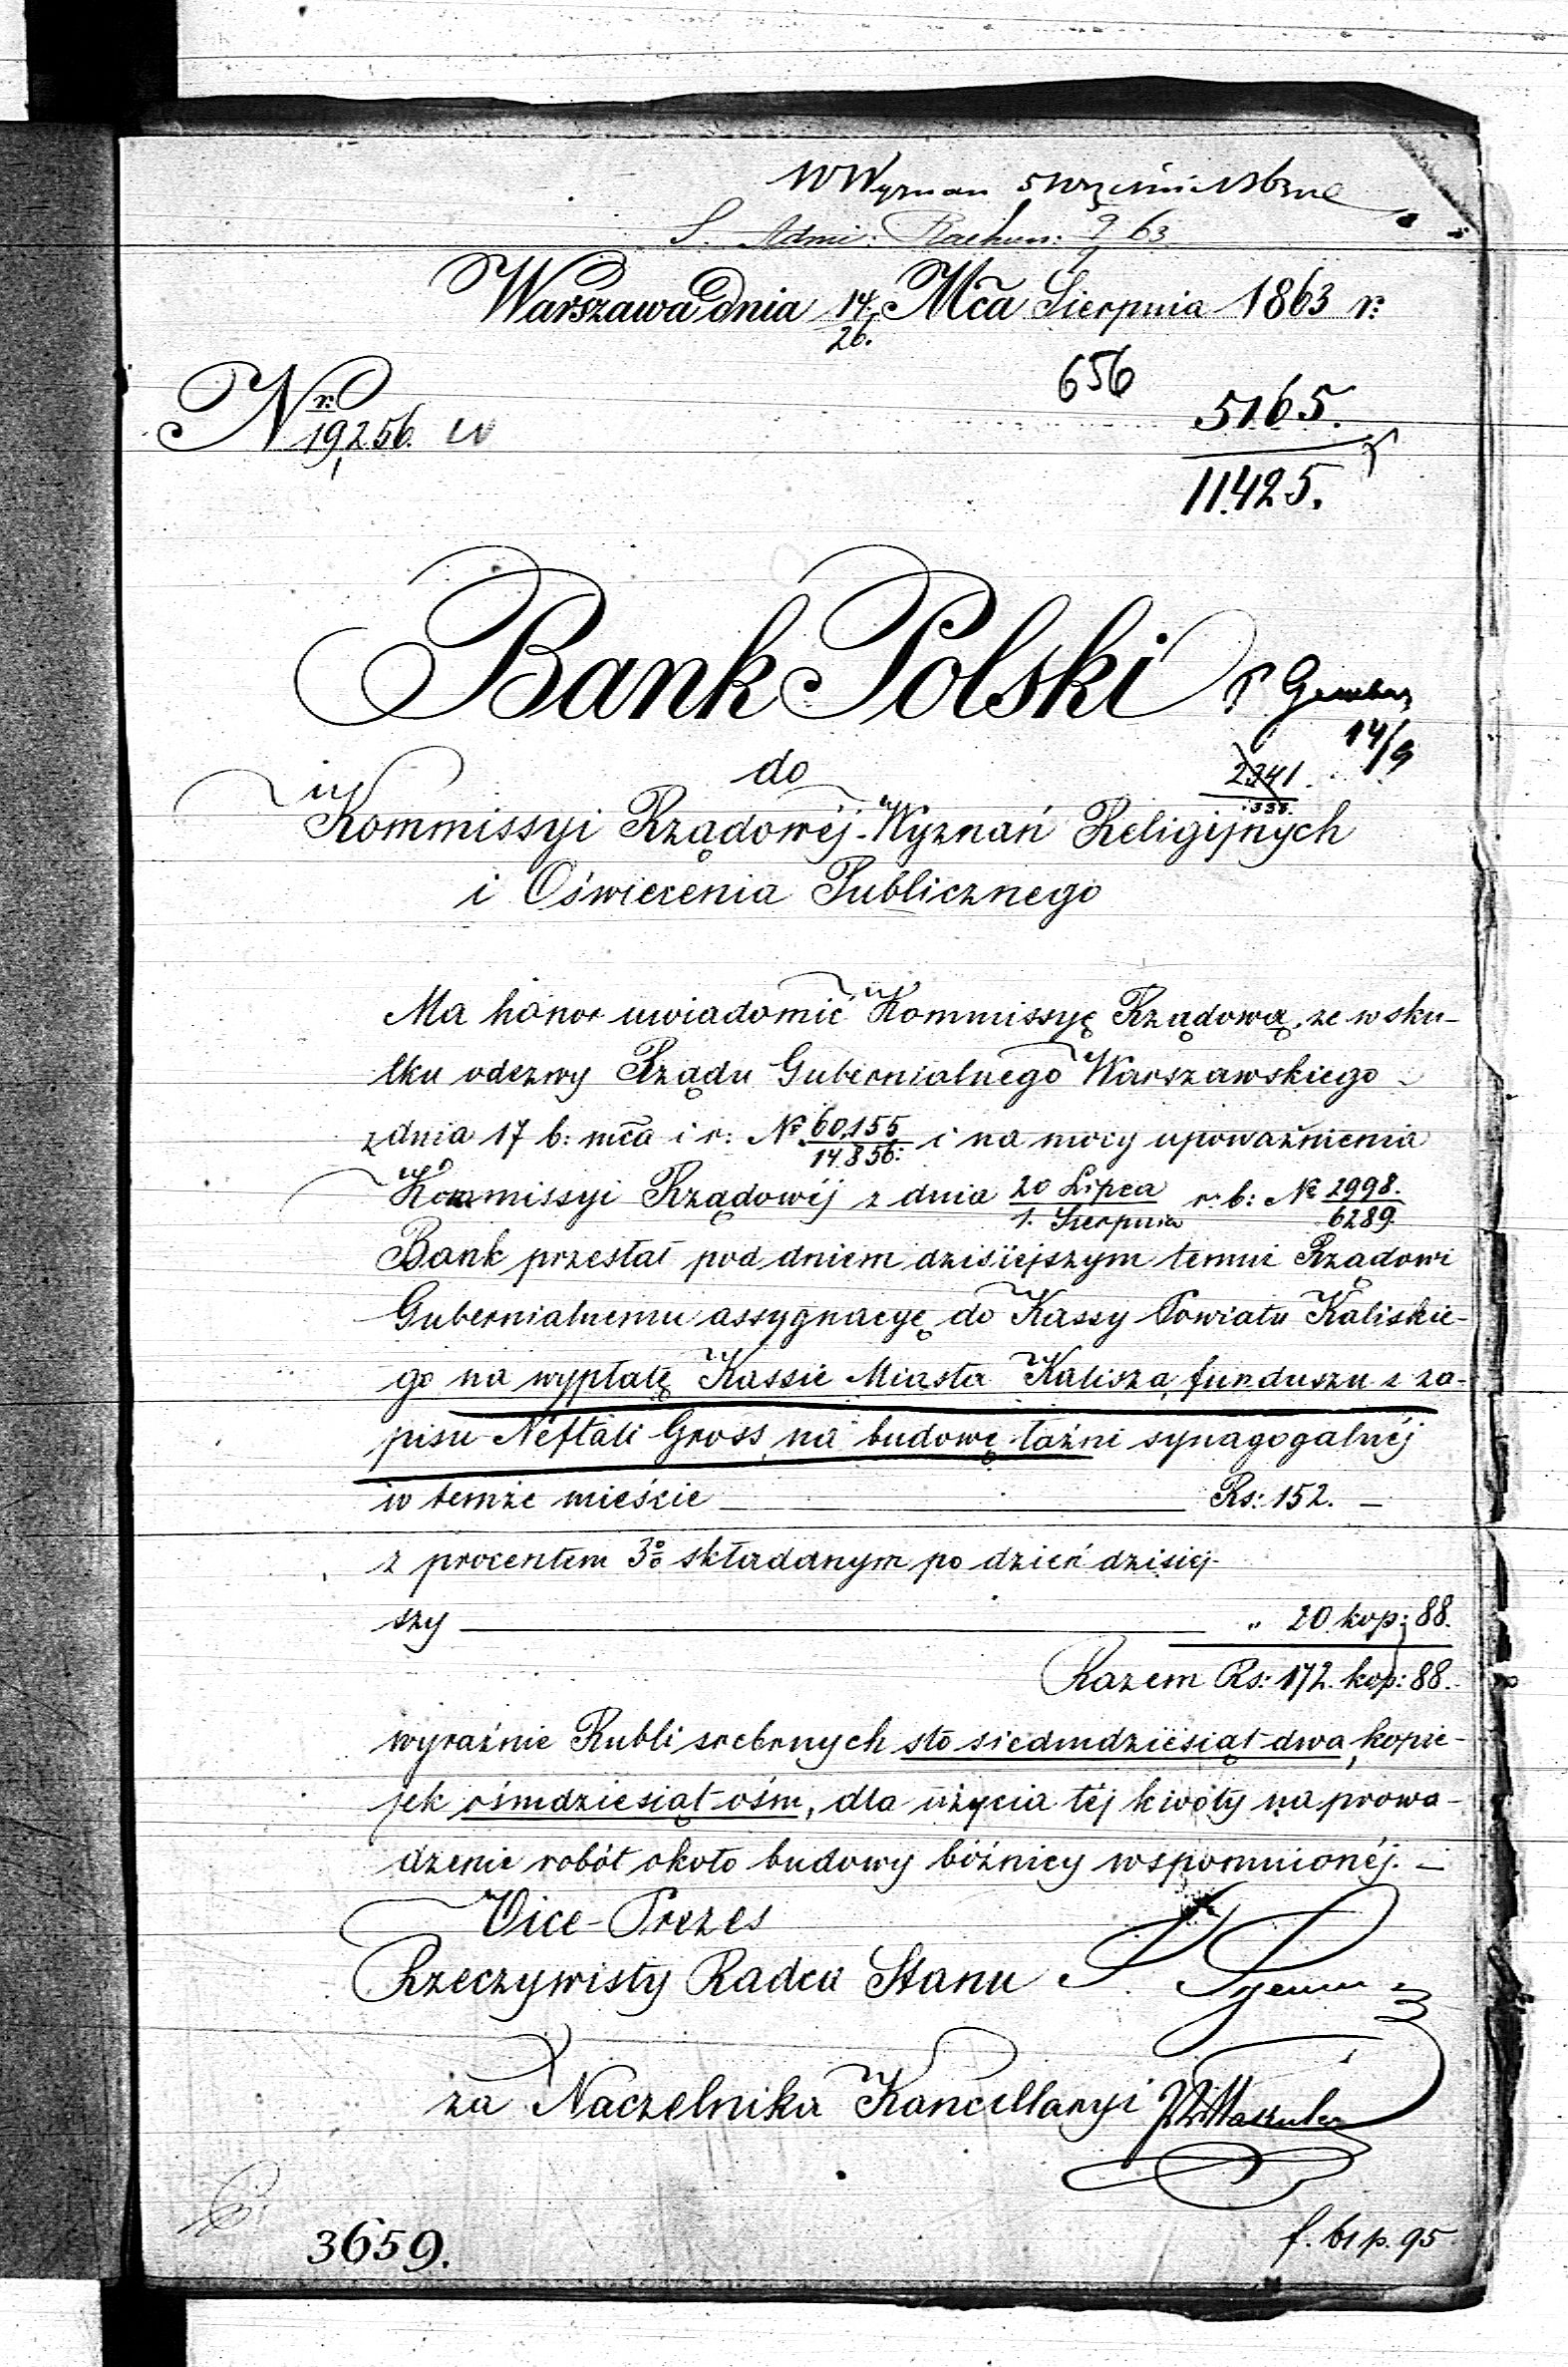 W Wyznań 5 września 1863
S. Admi: Rachun: 9/9 63
Warszawa dnia 14/26. Mca Sierpnia 1863 r:
656
Nr 19,256. W
5165.
11425.
Bank Polski
14/9
do
2241.
Kommissyi Rządowéj Wyznań Religijnych
i Oświecenia Publicznego
Ma honor uwiadomić Kommissyę Rządową, że wsku-
tku odezwy Rządu Gubernialnego Warszawskiego
z dnia 17 b: mca i r: No 60,155/14.856: i na mocy upoważnienia
Kommissyi Rządowéj z dnia 20 Lipca/1. Sierpnia r: b: No 2998./6289.
Bank przesłał pod dniem dzisiejszym temuż Rządowi
Gubernialnemu assygnacyę do Kassy Powiatu Kaliskie-
go na wypłatę Kassie Miasta Kalisza, funduszu z za-
pisu Neftali Gross, na budowę łaźni synagogalnéj
w temże mieście Rs: 152. —
z procentem 3% składanym po dzień dzisiej-
szy " 20 kop: 88.
Razem Rs: 172. kop: 88.
wyraźnie Rubli srebrnych sto siedmdziesiąt dwa, kopie-
jek ośmdziesiąt ośm, dla użycia téj kwoty na prowa-
dzenie robót około budowy bóżnicy wspomnionéj. —
Vice-Prezes
Rzeczywisty Radca Stanu
za Naczelnika Kancellaryi
3659.
f. 61 p. 95